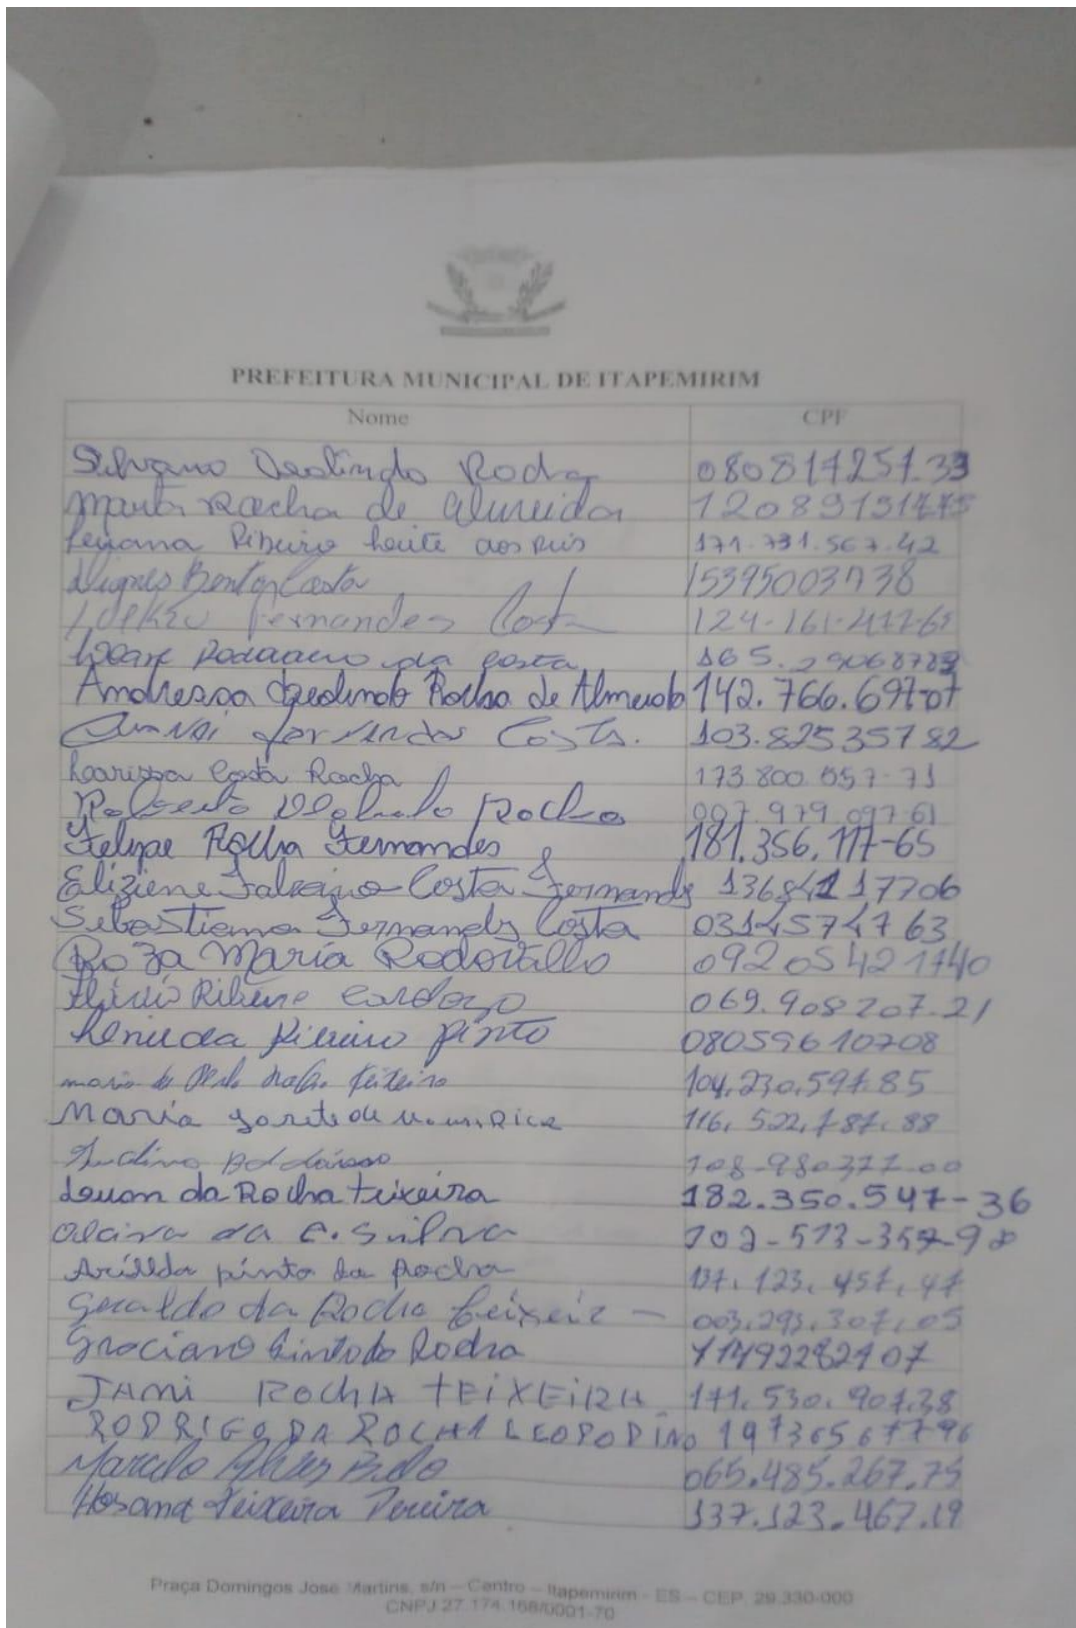 PREFEITURA MUNICIPAL DE ITAPEMIRIM
Nome CPF
Deolindo Rocha 080817257.33
Maria Rocha de Almeida 12089131775
Ribeiro Leite dos Reis 171.731.567.42
Costa 15395003738
Fernandes Costa 124-161-477-65
da Costa 165.
Andressa Deolindo Rocha de Almeida 142.766.697-07
Costa. 103.825357 82
Larissa Costa Rocha 173.800.557-71
Roberto Rocha 007.979.097-61
Felipe Rocha Fernandes 181.356.117-65
Eliziene Fabiano Costa Fernandes
Sebastiana Fernandes Costa 03145747 63
Roza Maria Rodovallo 09205421740
Flávio Ribeiro Cardozo 069.908207.21
Ribeiro Pinto 08059610708
Maria da Teixeira 104.230.597.85
Maria 116.522.787.88
108-980377-00
Luan da Rocha Teixeira 182.350.547-36
da C. Silva
Pinto da Rocha 137.123.457.47
Geraldo da Rocha Teixeir 003.293.307.05
Graciano Pinto da Rocha 11492282907
JAMI ROCHA TEIXEIRA 171.530.907.38
RODRIGO DA ROCHA LEOPODINO 197365677 96
Marcelo Alves 065.485.267.75
Hosana Teixeira Pereira 137.123.467.19
Praça Domingos José Martins, s/n – Centro – Itapemirim - ES – CEP. 29.330-000
CNPJ 27.174.168/0001-70